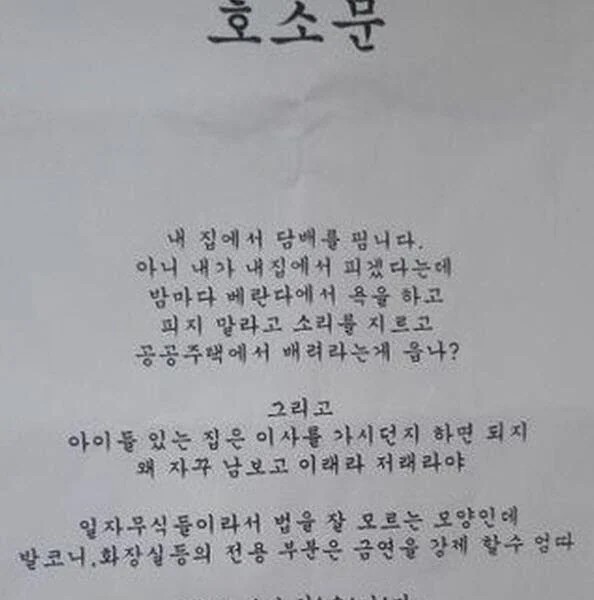 호소문
내 집에서 담배를 핍니다.
아니 내가 내집에서 피겠다는데
밤마다 베란다에서 욕을 하고
피지 말라고 소리를 지르고
공공주택에서 배려라는게 읍나?
그리고
아이들 있는 집은 이사를 가시던지 하면 되지
왜 자꾸 남보고 이래라 저래라야
일자무식들이라서 법을 잘 모르는 모양인데
발코니,화장실등의 전용 부분은 금연을 강제 할수 엄따